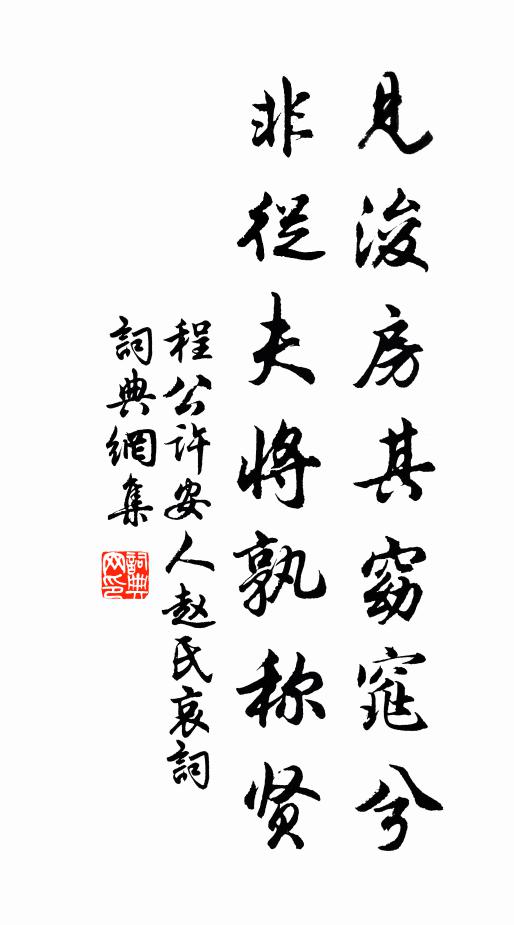 見浚房其窈窕兮
非從夫將孰称贤
程公许安人赵氏哀詞
詞典網集
詞典网印